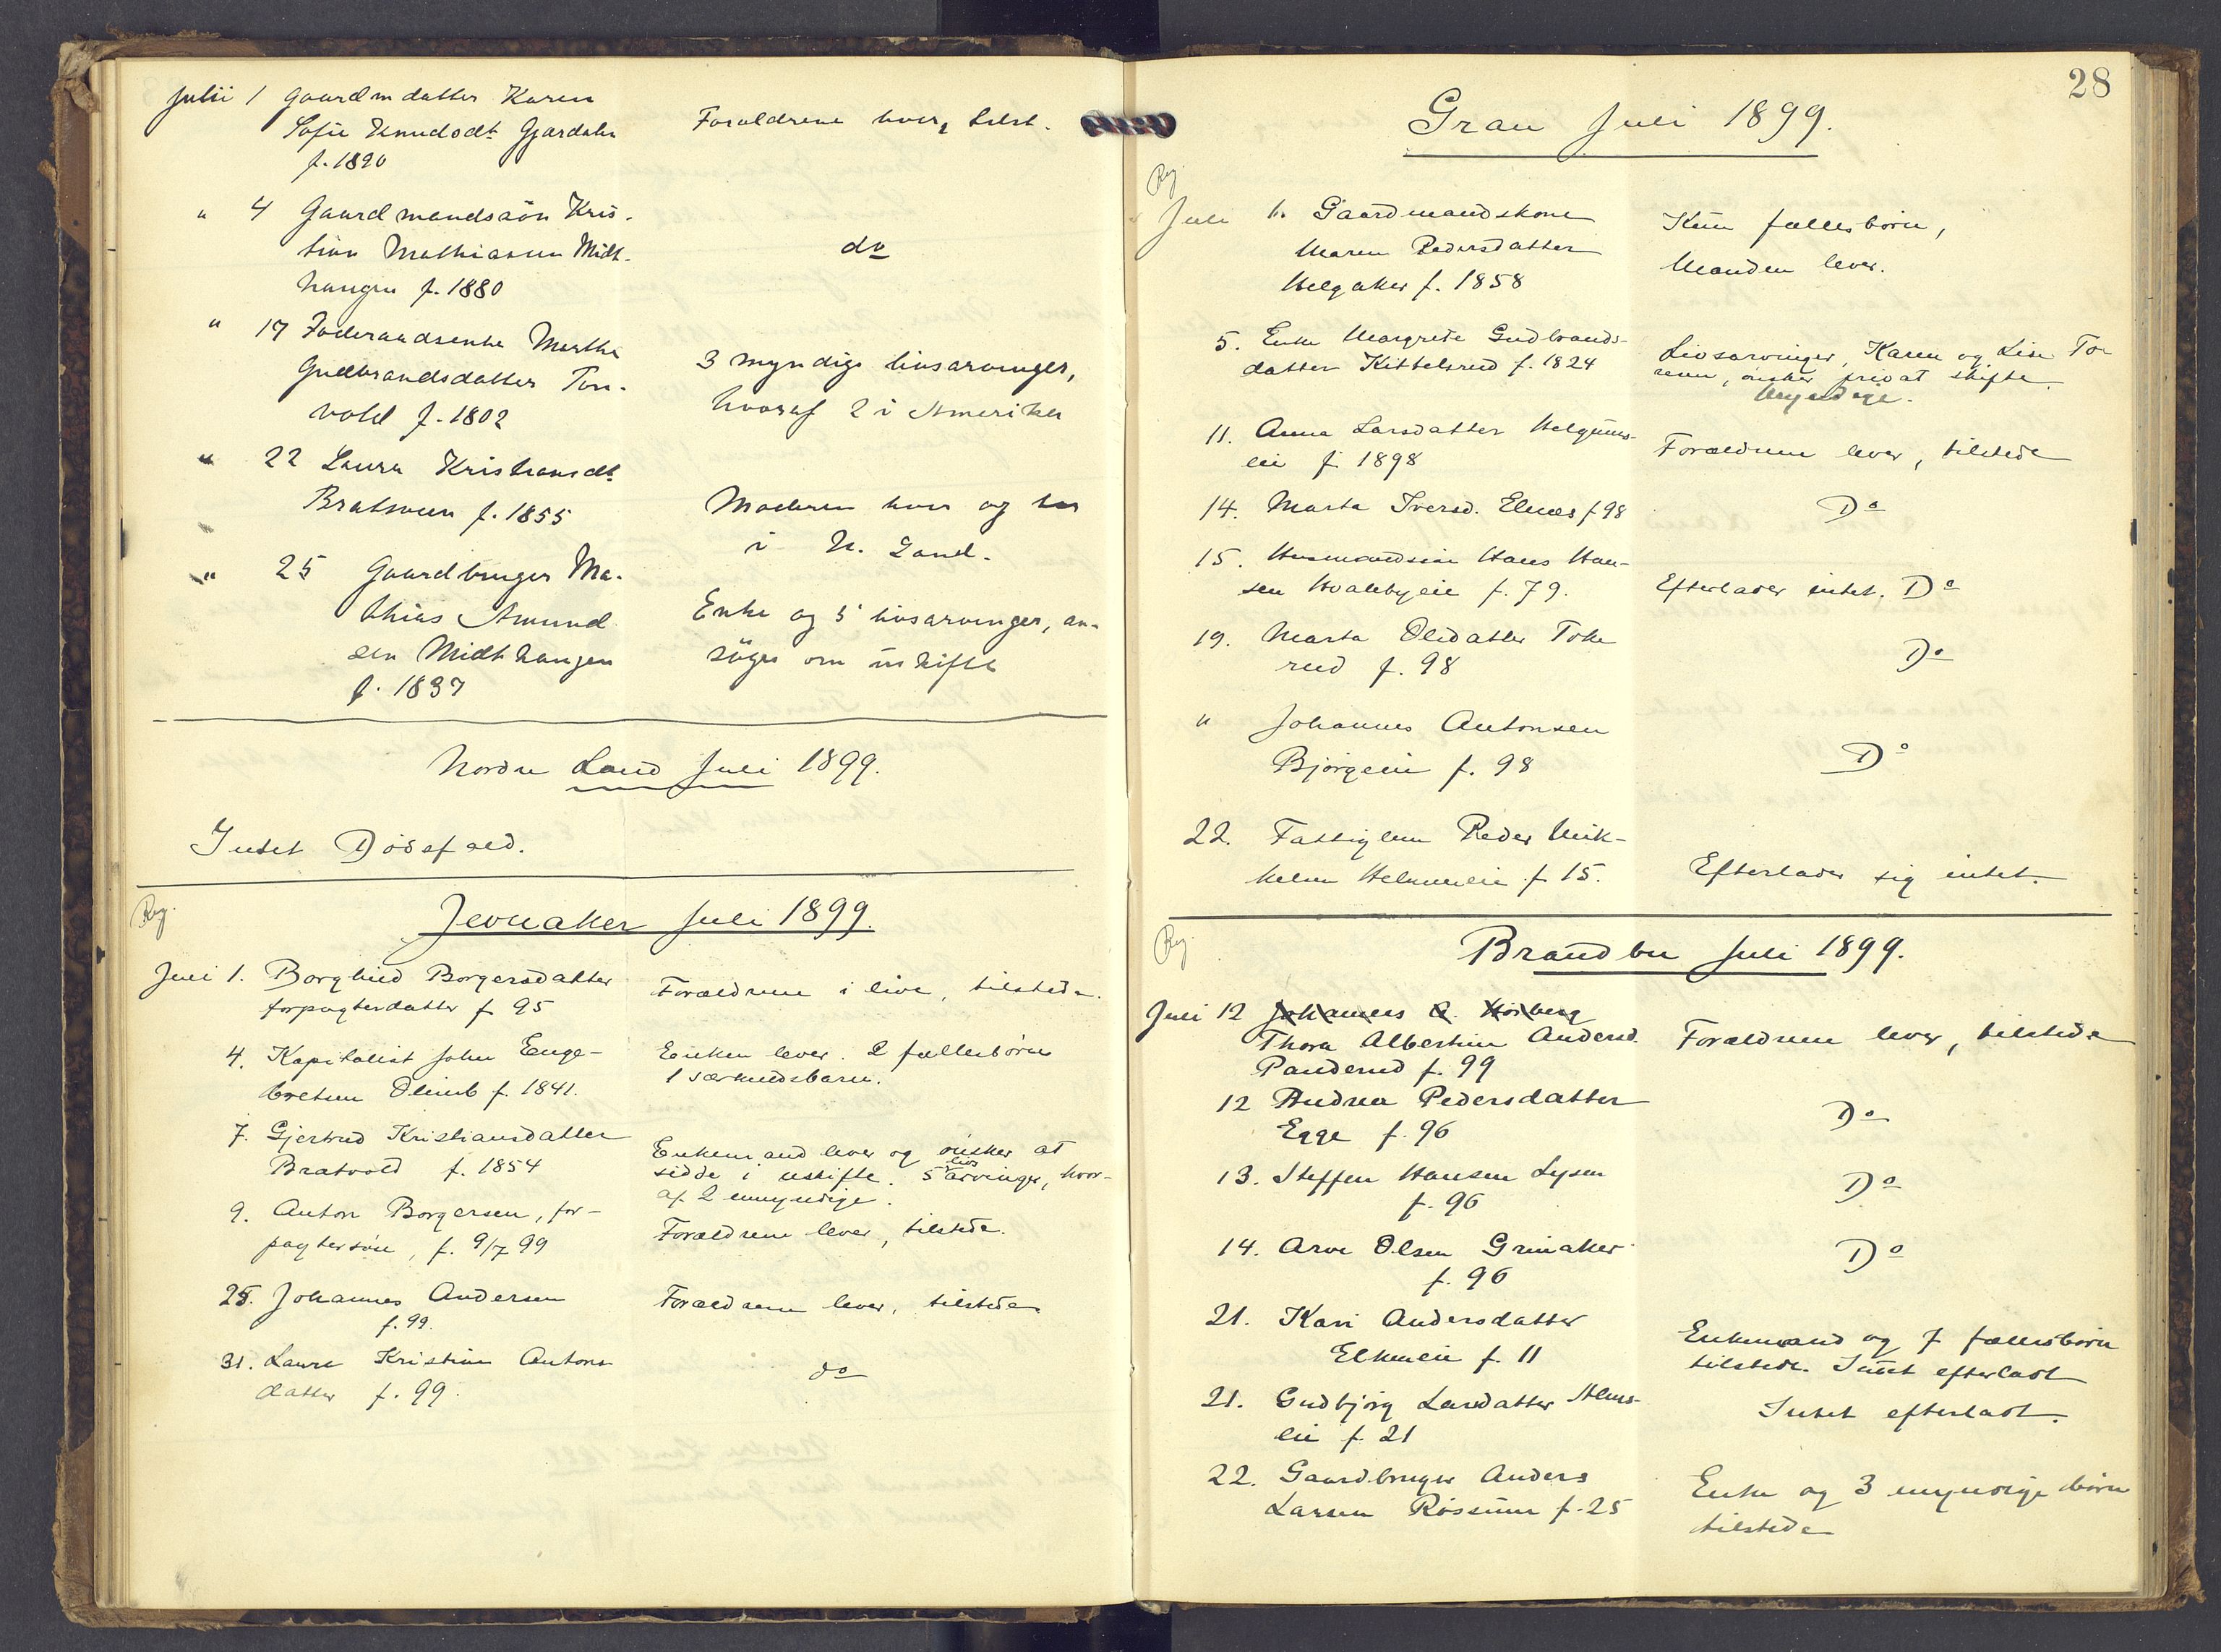 Julii 1 Gaardmdatter Karen
Sofie Knudsdt Gjærdalen
f. 1890
Forældrene lever, tilst.
" 4 Gaardmandssön Kris-
tian Mathiasen Midt-
haugen f. 1880
do
" 17 Föderaadsenke Marthe
Gudbrandsdatter Ton-
vold f. 1802
3 myndige livsarvinger,
hvoraf 2 i Amerika
" 22 Laura Kristiansdt
Bratsveen f. 1855
Moderen lever og bor
i N. Land.
" 25 Gaardbruger Ma-
thias Amund
sen Midthaugen
f. 1837
Enke og 5 livsarvinger, an-
söger om uskifte
Nordre Land Juli 1899.
Intet Dödsfald.
Reg.
Jevnaker Juli 1899.
Juli 1. Borghild Borgersdatter
forpagterdatter f. 95
Forældrene i live, tilstede.
4. Kapitalist John Enge-
bretsen Olimb f. 1841.
Enken lever. 2 fællesbörn
1 særkuldsbarn.
7. Gjertrud Kristiansdatter
Bratvold f. 1854
Enkemand lever og önsker at
sidde i uskifte. 5 livsarvinger, hvor-
af 2 umyndige.
9. Anton Borgersen, for-
pagtersön, f. 9/7 99
Forældrene lever, tilstede.
28. Johannes Andersen
f. 99.
Forældrene lever, tilstede
31. Laura Kristine Antons
datter f. 99.
do
28
Gran Juli 1899.
Reg
Juli 1. Gaardmandskone
Maren Pedersdatter
Helgaker f. 1858
Kun fællesbörn,
Manden lever.
5. Enke Margrete Gudbrands-
datter Kittelsrud f. 1824
Livsarvinger, Karen og Lise To-
resen, önsker privat skifte.
Myndige.
11. Anna Larsdatter Helgums-
eie f. 1898
Forældrene lever, tilstede
14. Marta Iversd. Elnæs f. 98
Do
15. Husmandssön Hans Han-
sen Hvalebyeie f. 79.
Efterlader intet. Do
19. Marta Olsdatter Toke
rud f. 98
Do
" Johannes Antonsen
Bjørgeeie f. 98
Do
22. Fattiglem Peder Mik-
kelsen Helmeneie f. 15.
Efterlader sig intet.
Reg.
Brandbu Juli 1899.
Juli 12 Johannes O. Höiberg
Thora Albertine Andersd.
Panderud f. 99
Forældrene lever, tilstede
12 Andrea Pedersdatter
Egge f. 96
Do
13. Steffen Hansen Lysen
f. 96
Do
14. Arve Olsen Grinaker
f. 96
Do
21. Kari Andersdatter
Elkeneie f. 11
Enkemand og 7 fællesbörn
tilstede. Intet efterladt
21. Gudbjörg Larsdatter Alms-
eie f. 21
Intet efterladt.
22. Gaardbruger Anders
Larsen Røssum f. 25
Enke og 3 umyndige börn
tilstede